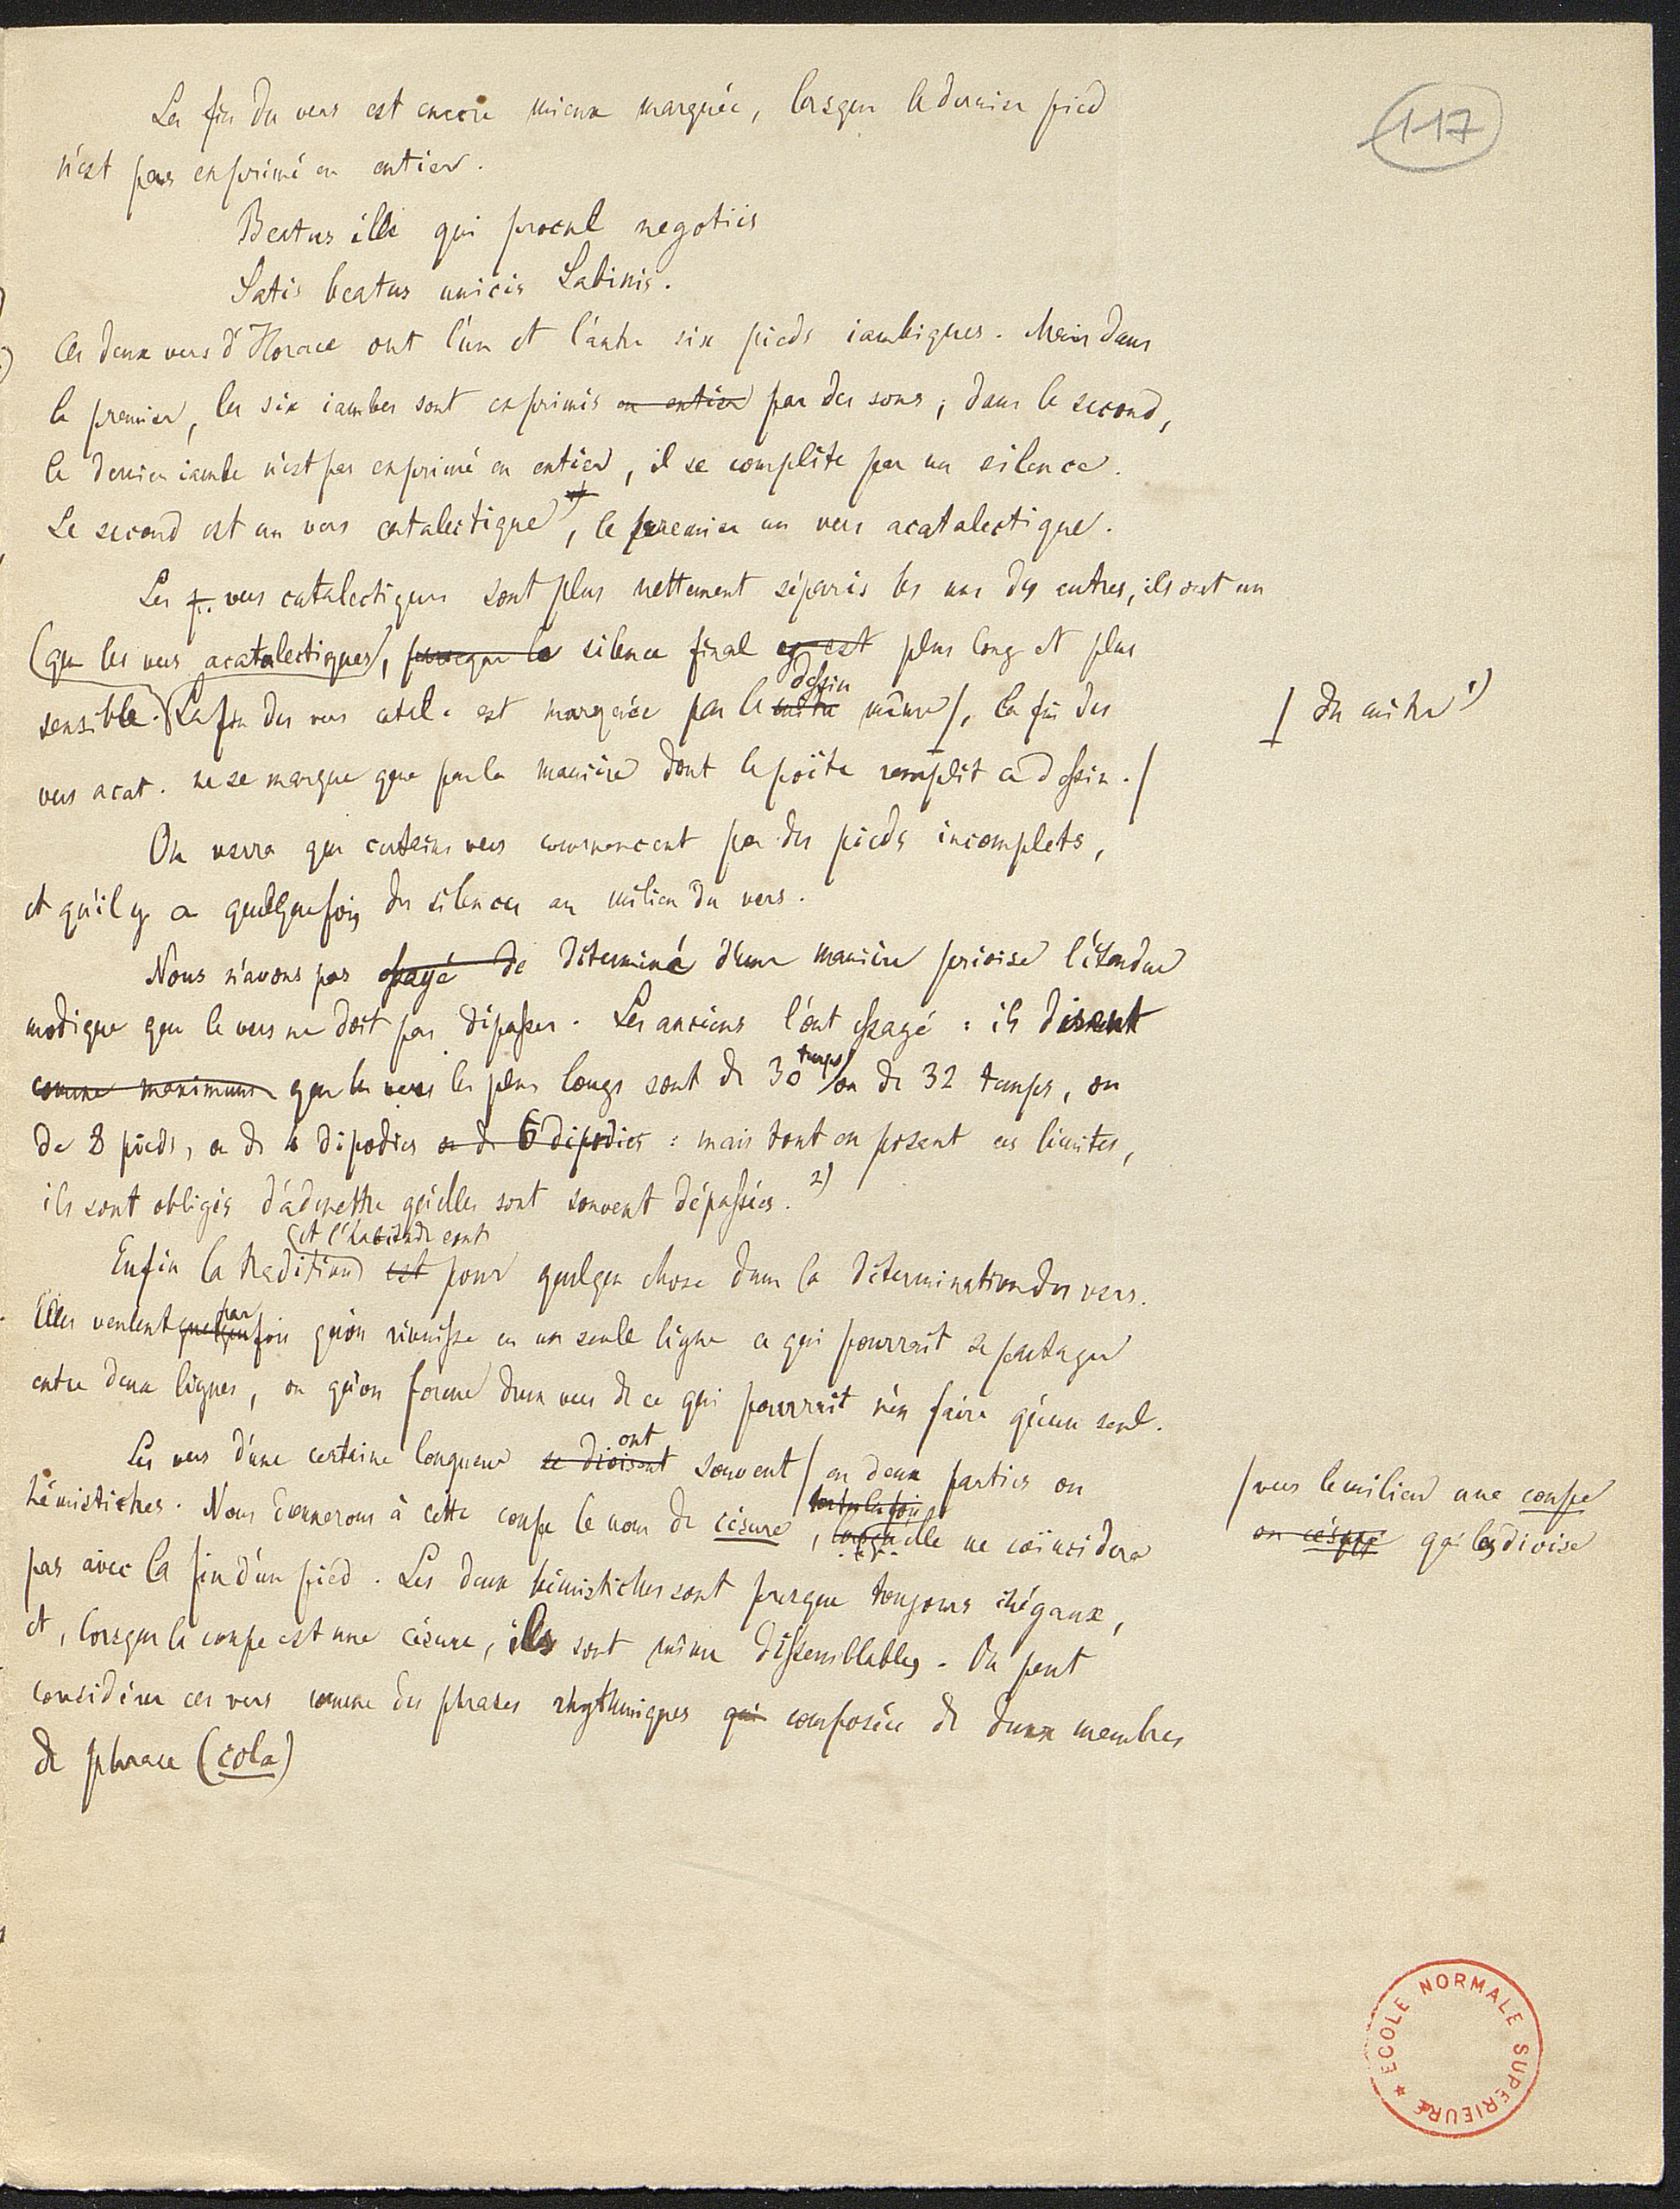 117
La fin du vers est encore mieux marquée, lorsque le dernier pied
n'est pas exprimé en entier.
Beatus ille qui procul negotiis
Satis beatus unicis Sabinis.
Ces deux vers d'Horace ont l'un et l'autre six pieds iambiques. Mais dans
le premier, les six iambes sont exprimés en entier par des sons ; dans le second,
le dernier iambe n'est pas exprimé en entier, il se complète par un silence.
Le second est un vers catalectique, le premier un vers acatalectique.
Les vers catalectiques sont plus nettement séparés les uns des autres, ils ont un
(que les vers acatalectiques), parce que le silence final est plus long et plus
sensible. La fin des vers catal. est marquée par le mètre dessin même /, la fin des
/ du mètre 1)
vers acat. ne se marque que par la manière dont le poëte remplit ce dessin. /
On verra que certains vers commencent par des pieds incomplets,
et qu'il y a quelquefois des silences au milieu du vers.
Nous n'avons pas essayé de déterminé d'une manière précise l'étendue
modique que le vers ne doit pas dépasser. Les anciens l'ont essayé : ils disent
comme maximum que les vers les plus longs sont de 30 temps / ou de 32 temps, ou
de 8 pieds, ou de 4 dipodies ou de 6 dipodies : mais tout en posant ces limites,
ils sont obligés d'admettre qu'elles sont souvent dépassées. 2)
(et l'habitude sont
Enfin la tradition est pour quelque chose dans la détermination des vers.
Elles veulent quelque par fois qu'on réunisse en un seule ligne ce qui pourrait se partager
entre deux lignes, ou qu'on forme deux vers de ce qui pourrait n'en faire qu'un seul.
Les vers d'une certaine longueur se divisent ont souvent / en deux parties ou
/ vers le milieu une coupe
ou césure qui les divise
hémistiches. Nous donnerons à cette coupe le nom de césure, toutes les fois lorsqu'elle ne coïncidera
pas avec la fin d'un pied. Les deux hémistiches sont presque toujours inégaux,
et, lorsque la coupe est une césure, ils sont même dissemblables. On peut
considérer ces vers comme des phrases rhythmiques qui composées de deux membres
de phrase (cola)
ECOLE NORMALE SUPERIEURE